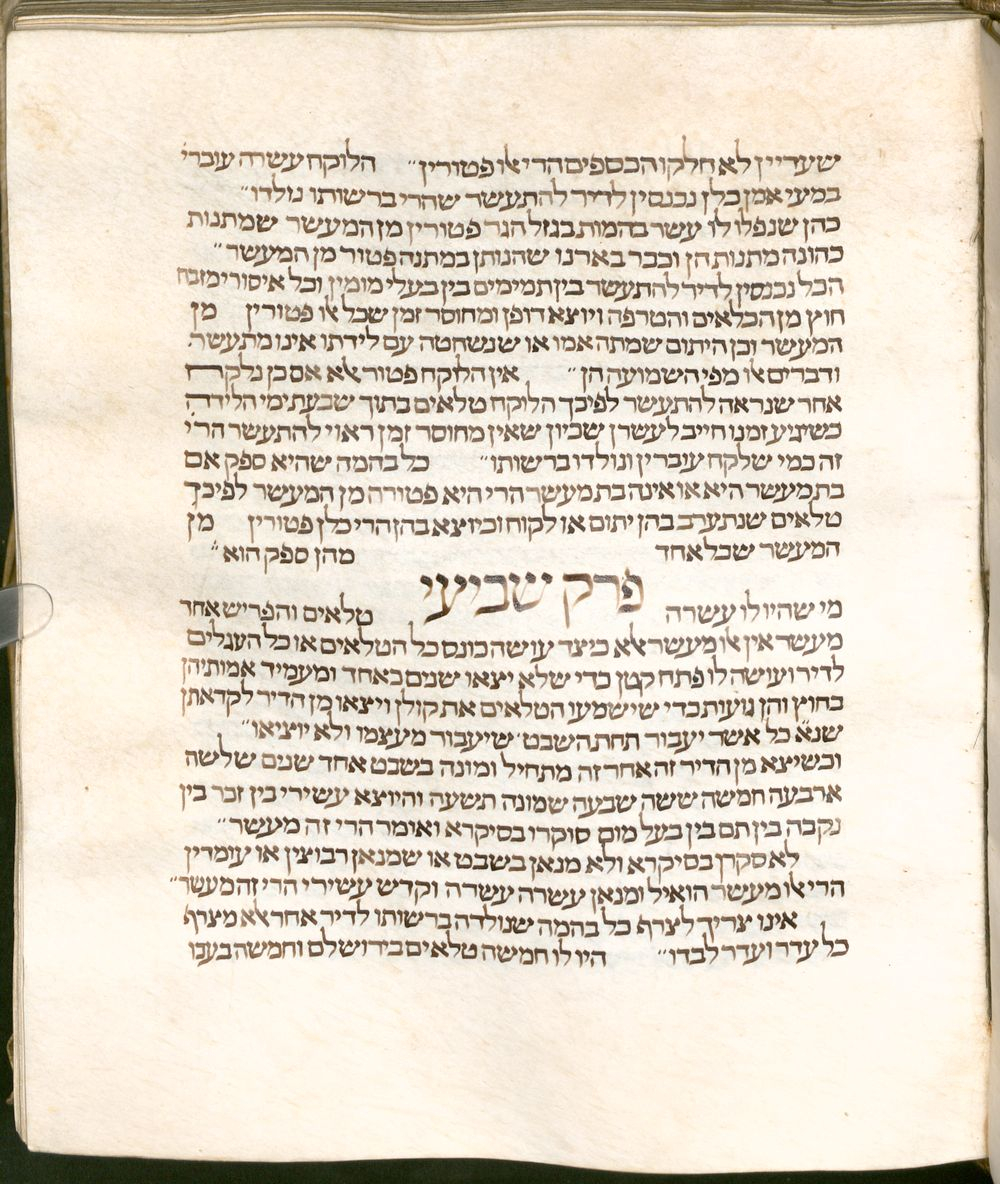 שעדיין לא חלקו הכספים הרי אלו פטורין״ הלוקח עשרה עוברי
במעי אמן כלן נכנסין לדיר להתעשר שהרי ברשותו נולדו״
כהן שנפלו לו עשר בהמות בגזל הגר פטורין מן המעשר שמתנות
כהונה מתנות הן וכבר בארנו שהנותן במתנה פטור מן המעשר״
הכל נכנסין לדיר להתעשר בין תמימים בין בעלי מומין וכל איסורי מזבח
חוץ מן הכלאים והטרפה ויוצא דופן ומחוסר זמן שכל אלו פטורין מן
המעשר וכן היתום שמתה אמו או שנשחטה עם לידתו אינו מתעשר
ודברים אלו מפי השמועה הן״ אין הלוקח פטור אלא אם כן נלקח
אחר שנראה להתעשר לפיכך הלוקח טלאים בתוך שבעת ימי הלידה
כשיגיע זמנו חייב לעשרן שכיון שאין מחוסר זמן ראוי להתעשר הרי
זה כמי שלקח עוברין ונולדו ברשותו״ כל בהמה שהיא ספק אם
בת מעשר היא או אינה בת מעשר הרי היא פטורה מן המעשר לפיכך
טלאים שנתערב בהן יתום או לקוח וכיוצא בהן הרי כלן פטורין מן
המעשר שכל אחד מהן ספק הוא״
פרק שביעי
מי שהיו לו עשרה טלאים והפריש אחד
מעשר אין אלו מעשר אלא כיצד עושה כונס כל הטלאים או כל העגלים
לדיר ועושה לו פתח קטן כדי שלא יצאו שנים כאחד ומעמיד אמותיהן
בחוץ והן גועות כדי שישמעו הטלאים את קולן ויצאו מן הדיר לקראתן
שנא׳ כל אשר יעבור תחת השבט׳ שיעבור מעצמו ולא יוציאו״
וכשיצא מן הדיר זה אחר זה מתחיל ומונה בשבט אחד שנים שלשה
ארבעה חמשה ששה שבעה שמונה תשעה והיוצא עשירי בין זכר בין
נקבה בין תם בין בעל מום סוקרו בסיקרא ואומר הרי זה מעשר״
לא סקרן בסיקרא ולא מנאן בשבט או שמנאן רבוצין או עומדין
הרי אלו מעשר הואיל ומנאן עשרה עשרה וקדש עשירי הרי זה מעשר״
אינו צריך לצרף כל בהמה שנולדה ברשותו לדיר אחד אלא מצרף
כל עדר ועדר לבדו״ היו לו חמשה טלאים בירושלם וחמשה בעכו